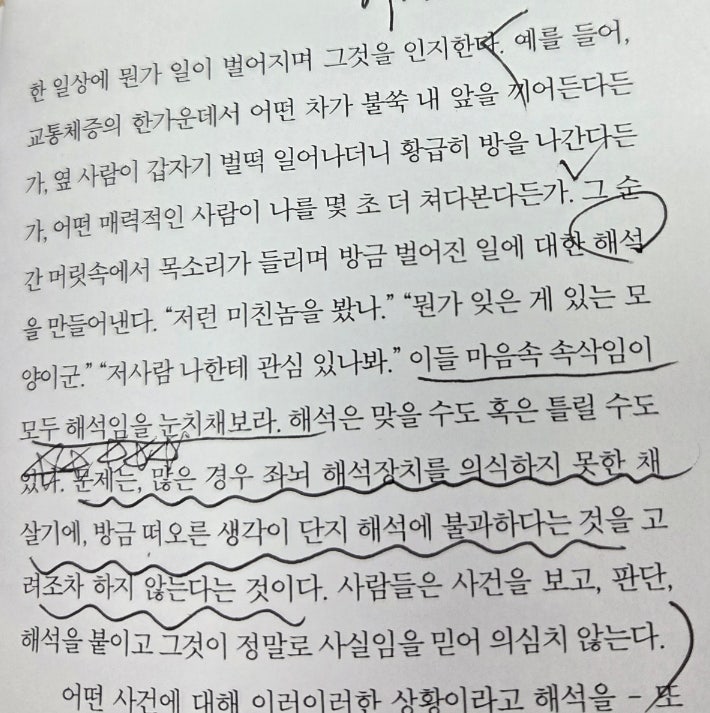 한 일상에 뭔가 일이 벌어지며 그것을 인지한다. 예를 들어,
교통체증의 한가운데서 어떤 차가 불쑥 내 앞을 끼어든다든
가, 옆 사람이 갑자기 벌떡 일어나더니 황급히 방을 나간다든
가, 어떤 매력적인 사람이 나를 몇 초 더 쳐다본다든가. 그 순
간 머릿속에서 목소리가 들리며 방금 벌어진 일에 대한 해석
을 만들어낸다. “저런 미친놈을 봤나.” “뭔가 잊은 게 있는 모
양이군.” “저사람 나한테 관심 있나봐.” 이들 마음속 속삭임이
모두 해석임을 눈치채보라. 해석은 맞을 수도 혹은 틀릴 수도
있다. 문제는, 많은 경우 좌뇌 해석장치를 의식하지 못한 채
살기에, 방금 떠오른 생각이 단지 해석에 불과하다는 것을 고
려조차 하지 않는다는 것이다. 사람들은 사건을 보고, 판단,
해석을 붙이고 그것이 정말로 사실임을 믿어 의심치 않는다.
어떤 사건에 대해 이러이러한 상황이라고 해석을 – 또